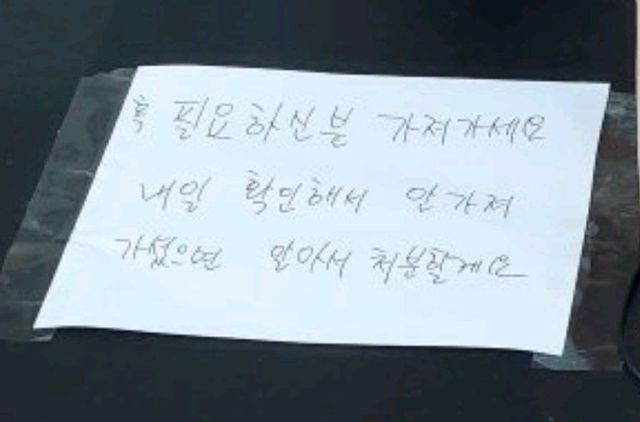 혹 필요하신분 가져가세요
내일 확인해서 안가져
가셨으면 알아서 처분할게요